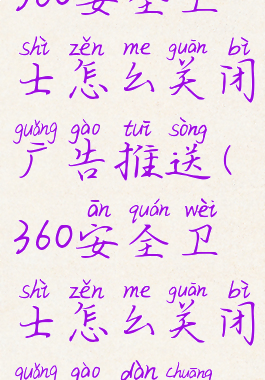 360安全卫
shì zěn me guān bì
士怎么关闭
guǎng gào tuī sòng
广告推送(
ān quán wèi
360安全卫
shì zěn me guān bì
士怎么关闭
guǎng gào dàn chuāng